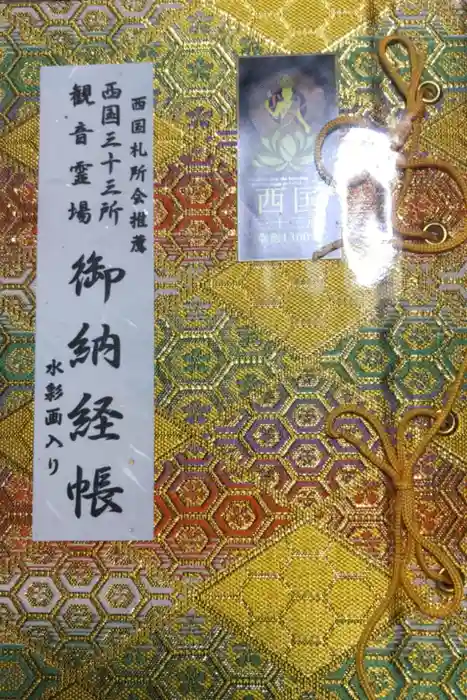 西国札所会推薦
西国三十三所
観音霊場
御納経帳
水彩画入り
西国
三十三